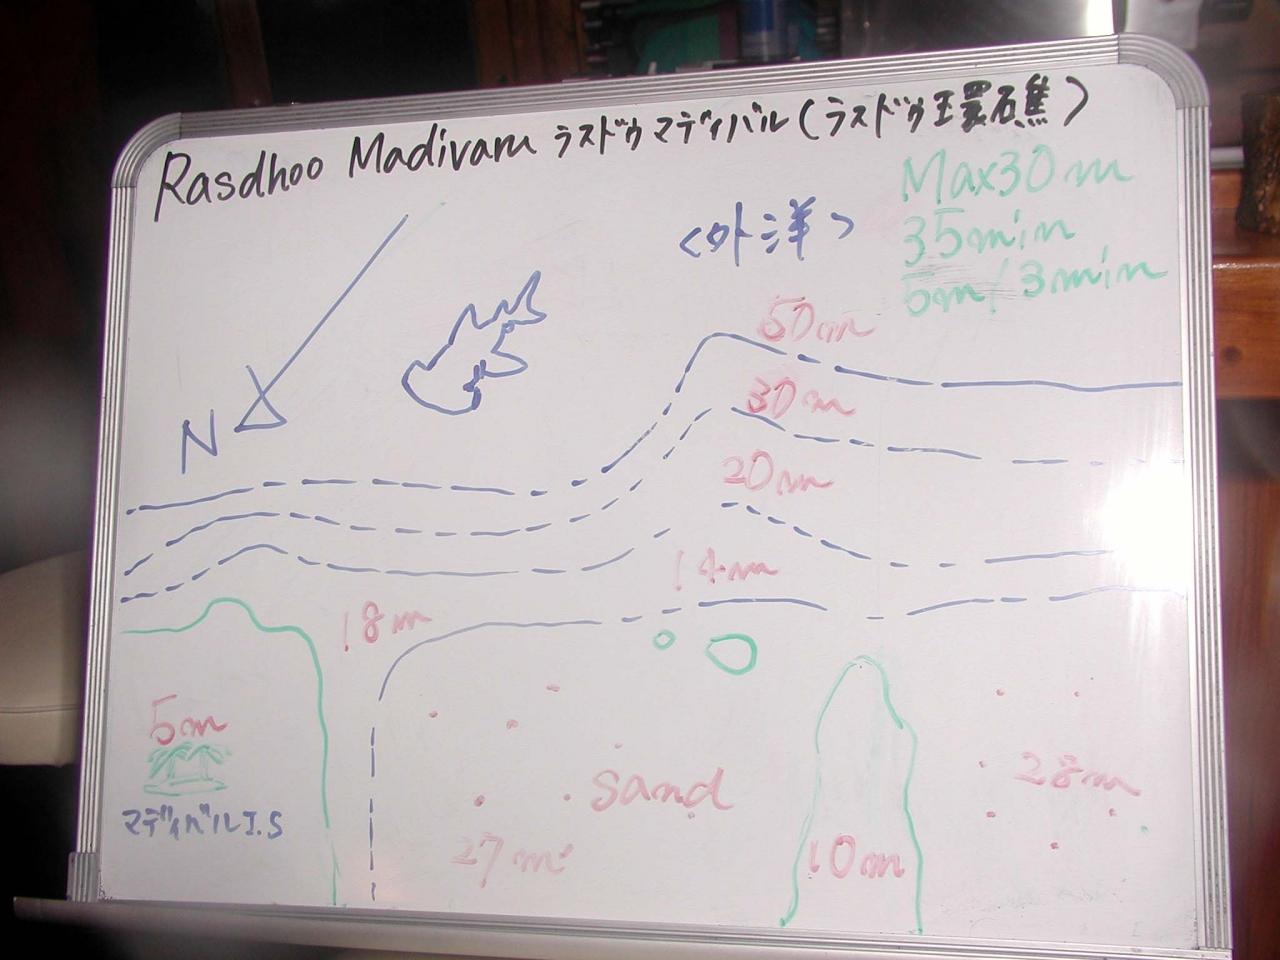 Rasdhoo Madivaru ラスドゥ マディバル (ラスドゥ環礁)
Max30m
35min
5m/3min
<外洋>
N
50m
30m
20m
14m
18m
5m
マディバルI.S
sand
27m
28m
10m